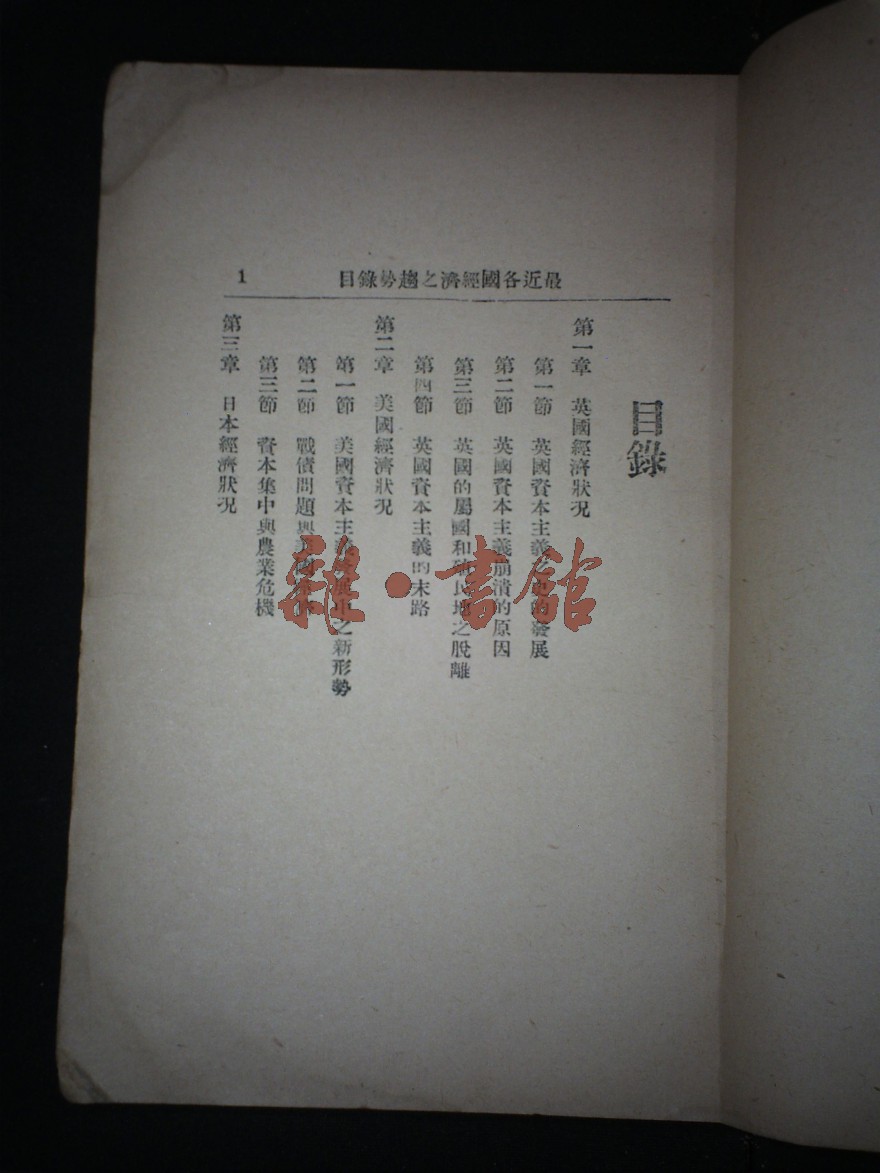 最近各國經濟之趨勢錄目
1
目錄
第一章 英國經濟狀况
第一節 英國資本主義之史的發展
第二節 英國資本主義崩潰的原因
第三節 英國的屬國和殖民地之脫離
第四節 英國資本主義的末路
第二章 美國經濟狀况
第一節 美國資本主義發展中之新形勢
第二節 戰債問題與美國
第三節 資本集中與農業危機
第三章 日本經濟狀况
雜·書館